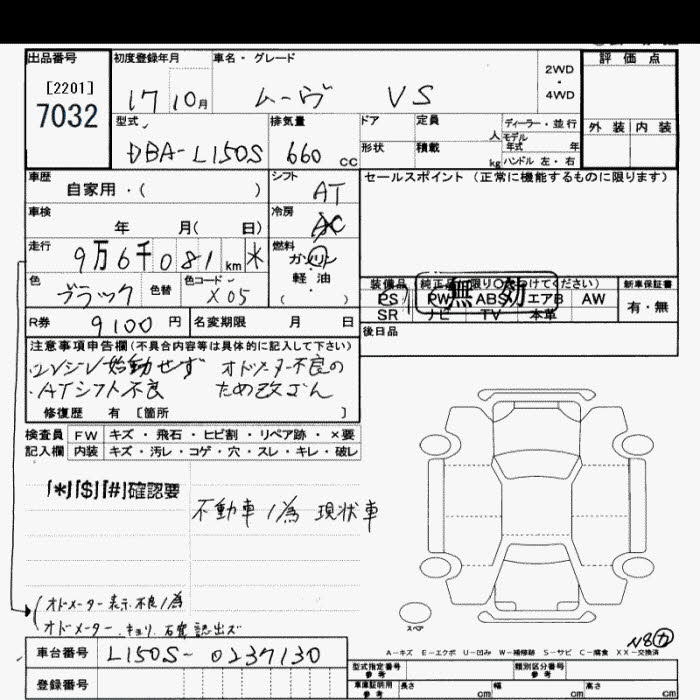 出品番号 初度登録年月 車名・グレード 評価点
[2201] 7032 17 10月 ムーヴ VS 2WD・4WD
型式 排気量 ドア 定員 人 ディーラー・並行 外装 内装
モデル年式 年
DBA-L150S 660 CC 形状 積載 kg ハンドル 左・右
車歴 自家用・( ) シフト AT セールスポイント (正常に機能するものに限ります)
車検 年 月( 日) 冷房 AC
走行 9万6千081km * 燃料 ガソリン・軽油・( )
色 ブラック 色替 色コード X05
装備品 (純正品に限り○をつけてください) 新車保証書
無効
PS PW ABS エアB AW 有・無
SR ナビ TV 本革
R券 9100円 名変期限 月 日 後日品
注意事項申告欄(不具合内容等は具体的に記入して下さい)
・エンジン始動せず オドメーター不良の
・ATシフト不良 ため改ざん
修復歴 有 [箇所 ]
検査員 FW キズ・飛石・ヒビ割・リペア跡・×要
記入欄 内装 キズ・汚レ・コゲ・穴・スレ・キレ・破レ
「*」「$」「#」確認要
不動車ノ為 現状車
オドメーター表示不良ノ為
オドメーター キョリ 確認出ズ
スペア
A-キズ E-エクボ U-凹み W-補修跡 S-サビ C-腐食 XX-交換済
車台番号 L150S-0237130
登録番号
型式指定番号 参考 類別区分番号 参考
車庫証明用 参考 長さ cm 幅 cm 高さ cm